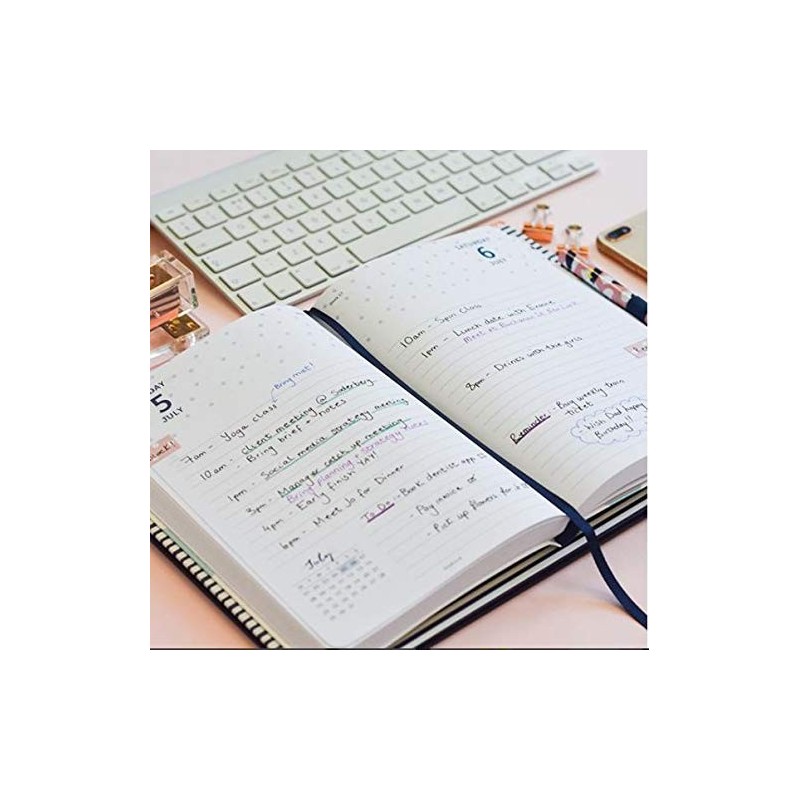 DAY
5
JULY
Bring mat!
7am - Yoga class
10am - Client meeting @ Soderberg
Bring brief + notes
1pm - Social media strategy meeting
3pm - Manager catch up meeting
Bring planning + strategy
4pm - Early finish YAY!
6pm - Meet Jo for Dinner
To Do: - Book dentist app
- Pay invoice
- Pick up flowers for
July
SATURDAY
6
JULY
10am - Spin class
1pm - Lunch date with
Meet at
8pm - Drinks with the girls
Reminder - Buy weekly train
ticket
Wish Dad happy
Birthday!!